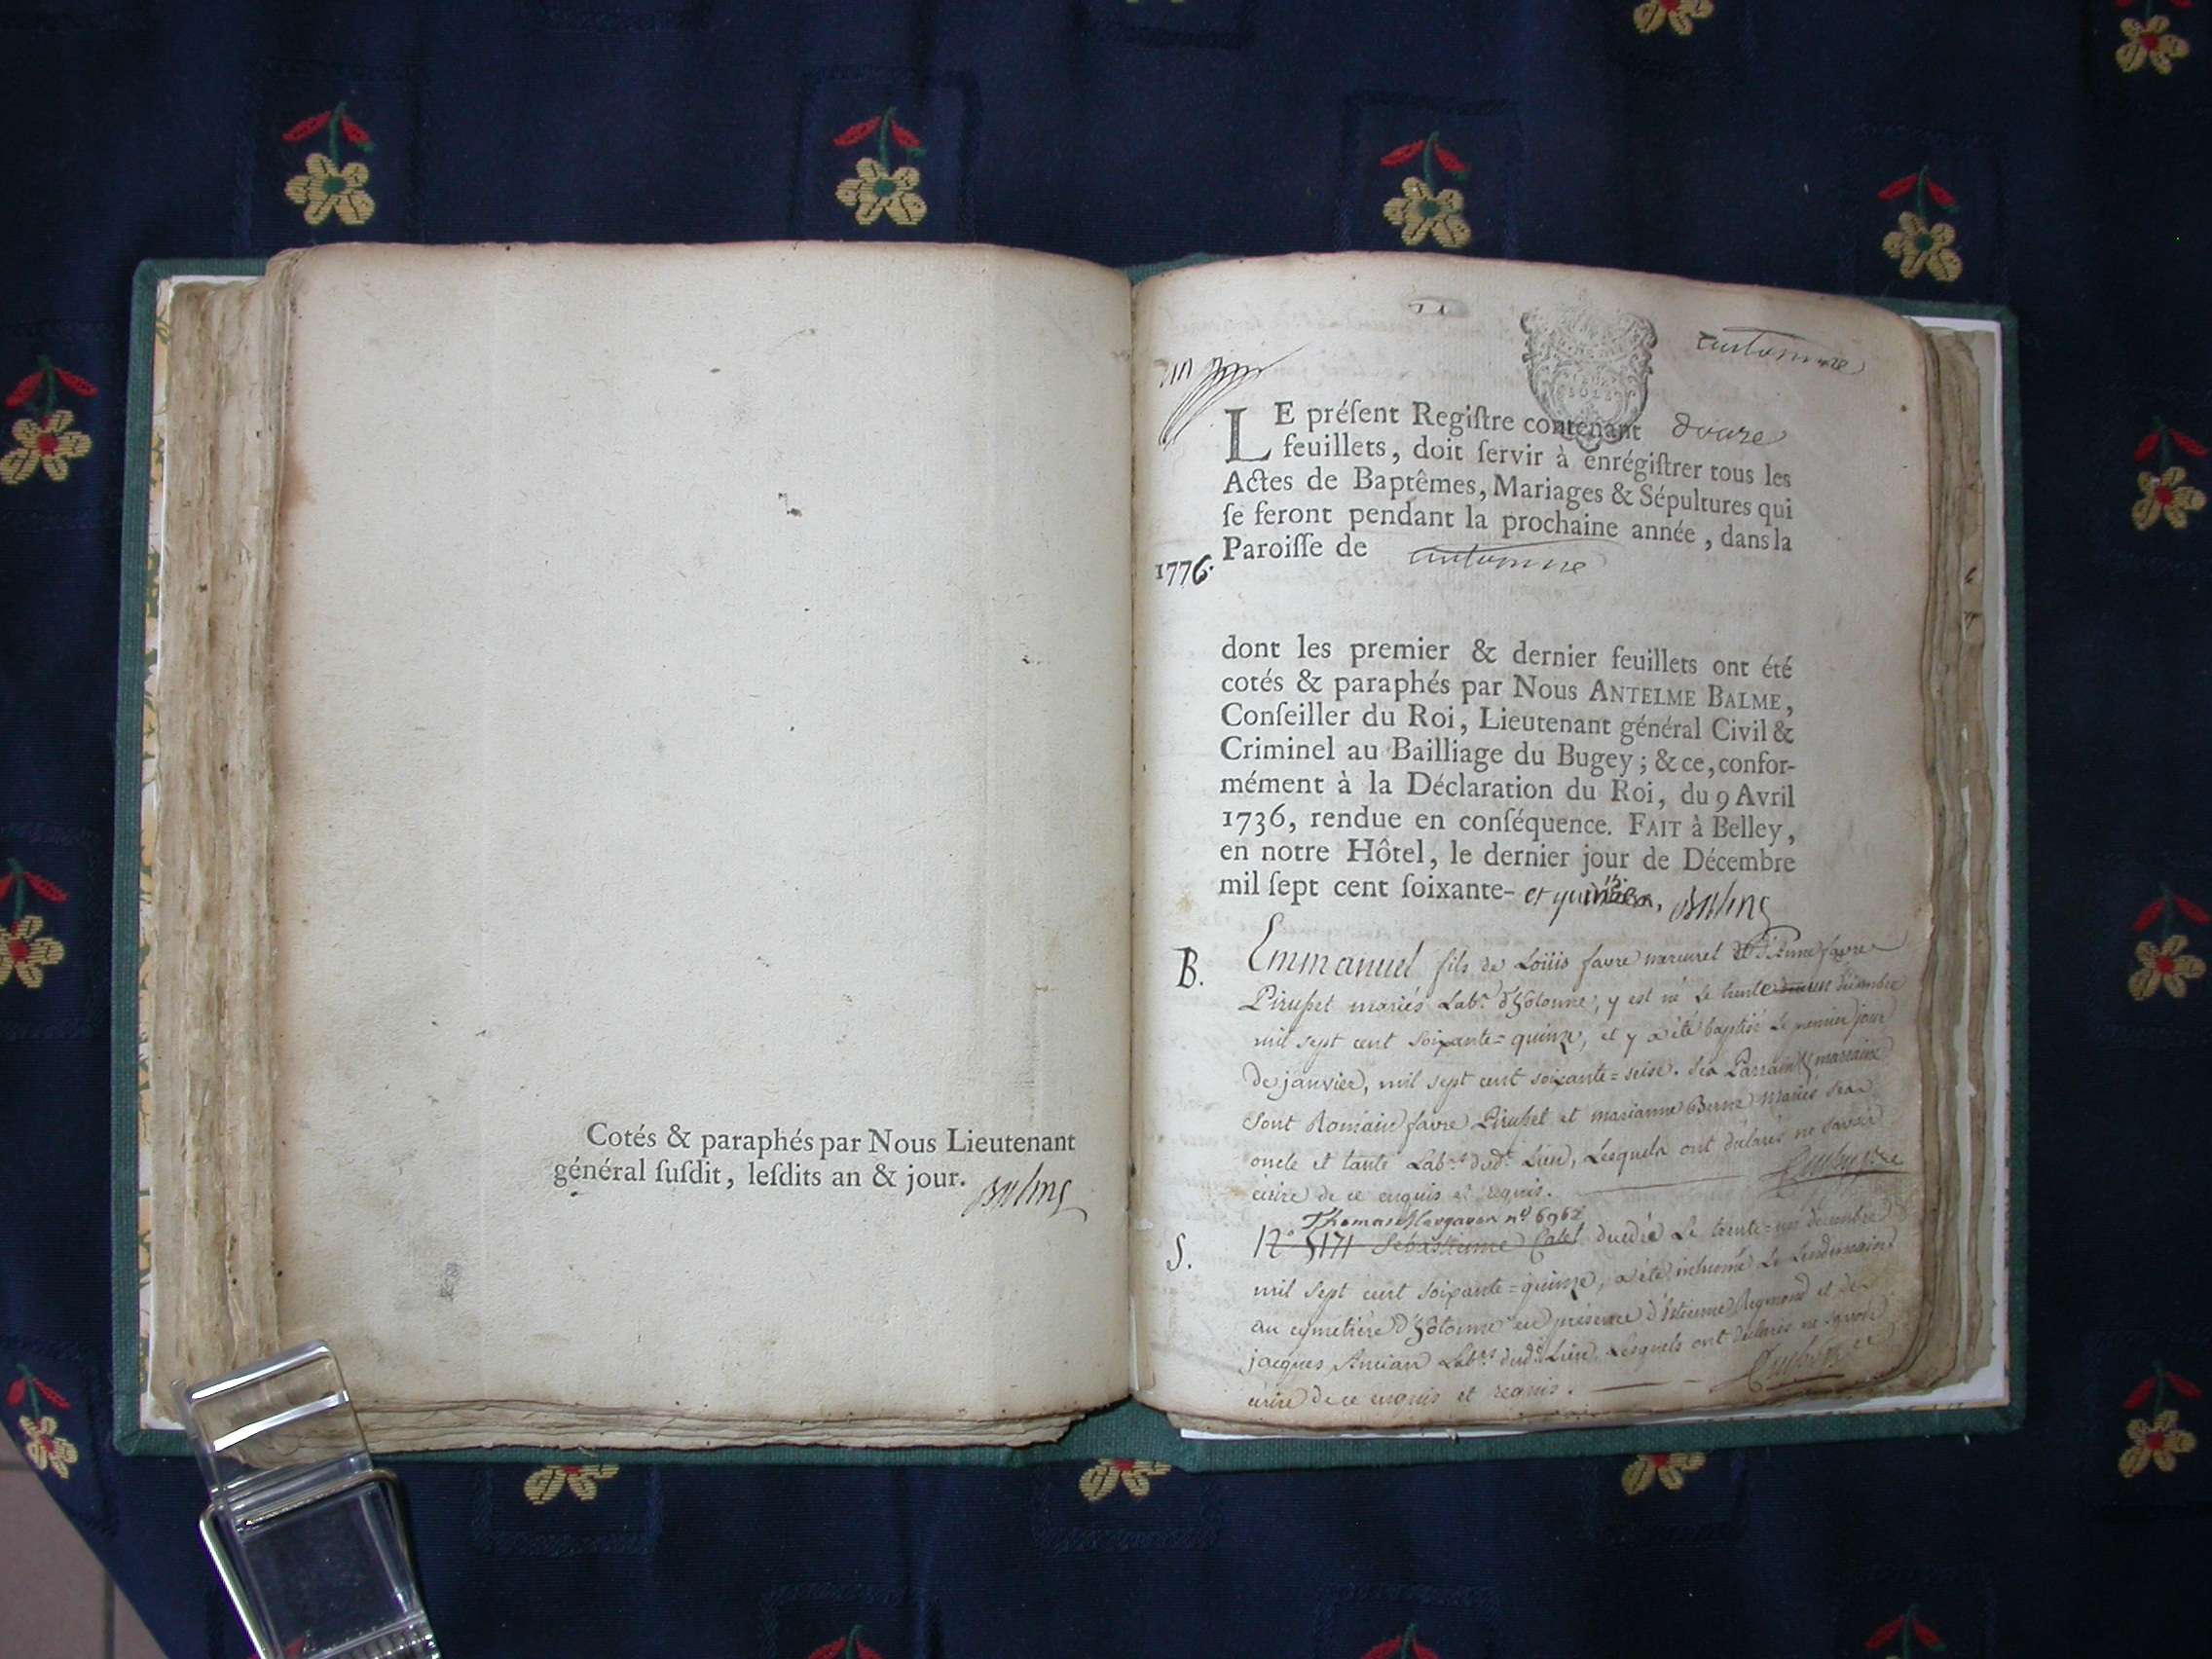 Cotés & paraphés par Nous Lieutenant
général ſuſdit, leſdits an & jour.
Balme
1776.
LE préſent Regiſtre contenant douze
feuillets, doit ſervir à enrégiſtrer tous les
Actes de Baptêmes, Mariages & Sépultures qui
ſe feront pendant la prochaine année, dans la
Paroiſſe de
dont les premier & dernier feuillets ont été
cotés & paraphés par Nous ANTELME BALME,
Conſeiller du Roi, Lieutenant général Civil &
Criminel au Bailliage du Bugey; & ce, confor-
mément à la Déclaration du Roi, du 9 Avril
1736, rendue en conſéquence. FAIT à Belley,
en notre Hôtel, le dernier jour de Décembre
mil ſept cent ſoixante- et quinze, Balme
B. Emmanuel fils de Loüis favre marurel et d'Anne favre
Pirusset mariés Lab.rs d'hotonne, y est né le trente un décembre
mil sept cent soixante=quinze, et y a été baptisé le premier jour
De janvier, mil sept cent soixante=seise. Ses Parrain & marraine
sont Romain favre Pirusset et marianne Berne mariés ses
oncle et tante Lab.rs dud.t Lieu, Lesquels ont déclarés ne savoir
écrire de ce enquis et requis.
Thomas n.o 6962
S. N.o 5171 Sébastienne Catel décédé le trente=un décembre
mil sept cent soixante=quinze, a été inhumé le Lendemain
au cymetière d'hotonne en présence d'Etienne Reymond et de
jacques Ancian Lab.rs dud.t Lieu, Lesquels ont déclarés ne savoir
écrire de ce enquis et requis.